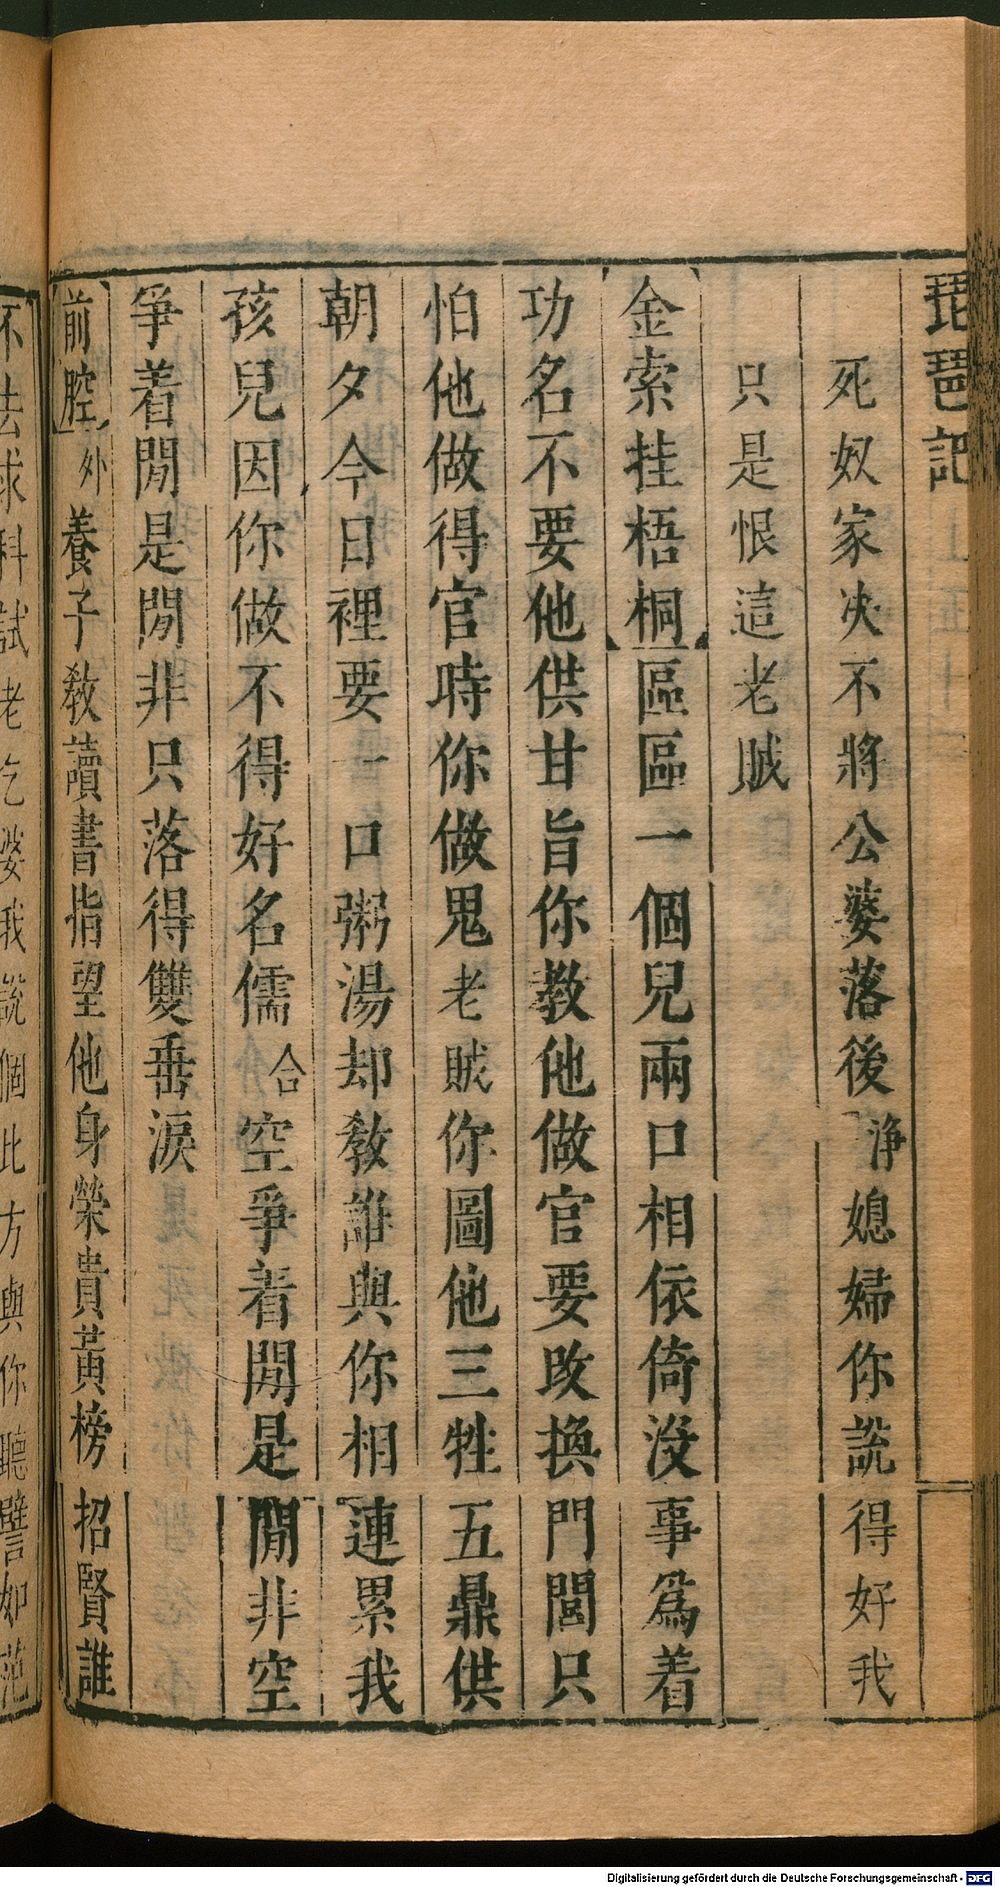 琵琶記
死奴家決不將公婆落後淨媳婦你說得好我
只是恨這老賊
金索挂梧桐區區一個兒兩口相依倚沒事爲着
功名不要他供甘旨你教他做官要改換門閭只
怕他做得官時你做鬼老賊你圖他三牲五鼎供
朝夕今日裡要一口粥湯却教誰與你相連累我
孩兒因你做不得好名儒合空爭着閒是閒非空
爭着閒是閒非只落得雙垂淚
前腔外養子教讀書指望他身榮貴黃榜招賢誰
不去求科試老乞婆我說個比方與你聽譬如范
Digitalisierung gefördert durch die Deutsche Forschungsgemeinschaft - DFG